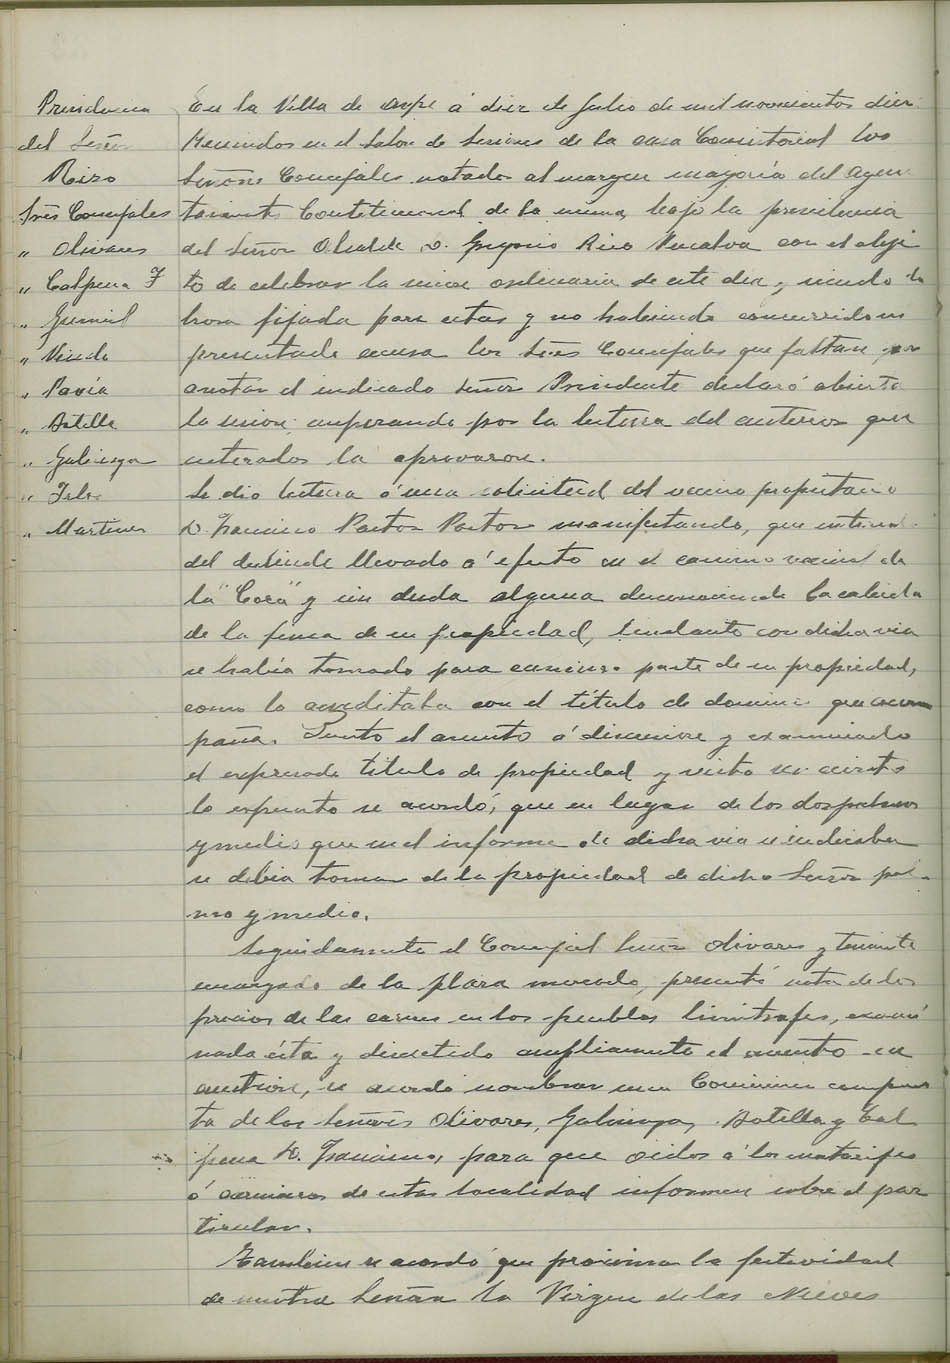 Presidencia
del Señor
Rizo
Sres Concejales
" Olivares
" Calpena F
" Gumiel
" Vicedo
" Pavia
" Botella
" Galinsoga
" Martinez
En la Villa de Aspe á diez de Julio de mil novecientos diez
Reunidos en el Salon de Sesiones de la casa Consistorial los
Señores Concejales notados al margen mayoría del Ayun
tamiento Constitucional de la misma, bajo la presidencia
del Señor Alcalde D. Gregorio Rizo con el obje
to de celebrar la sesion ordinaria de este dia, y siendo la
hora fijada para estas y no habiendo concurrido ni
presentado escusa los Sres Concejales que faltan por
anotar el indicado Señor Presidente declaró abierta
la sesion, empezando por la lectura del anterior que
enterados la aprovaron.
Se dio lectura á una solicitud del vecino propietario
D. Francisco Pastor Pastor manifestando, que enterado
del deslinde llevado á efecto en el camino vecinal de
la "Coca" y sin duda alguna desconociendo la cabida
de la finca de su propiedad, lindante con dicha via
se habia tomado para camino parte de su propiedad,
como lo acreditaba con el título de dominio que acom
paña. Puesto el asunto á discusion y examinado
el expresado titulo de propiedad y visto ser cierto
lo expuesto se acordó, que en lugar de los dos palmos
y medio que en el informe de dicha via se indicaba
se debia tomar de la propiedad de dicho Señor pal-
mo y medio.
Seguidamente el Concejal Señor Olivares y teniente
encargado de la plaza mercado, presentó nota de los
precios de las carnes en los pueblos limitrofes, exami
nada ésta y discutido ampliamente el asunto en
cuestion, se acordó nombrar una Comision compues
ta de los Señores Olivares, Galinsoga, Botella y Cal
pena D. Francisco, para que oidos á los matarifes
ó carniceros de esta localidad informen sobre el par
ticular.
Tambien se acordó que proxima la festividad
de nuestra Señora la Virgen de las Nieves